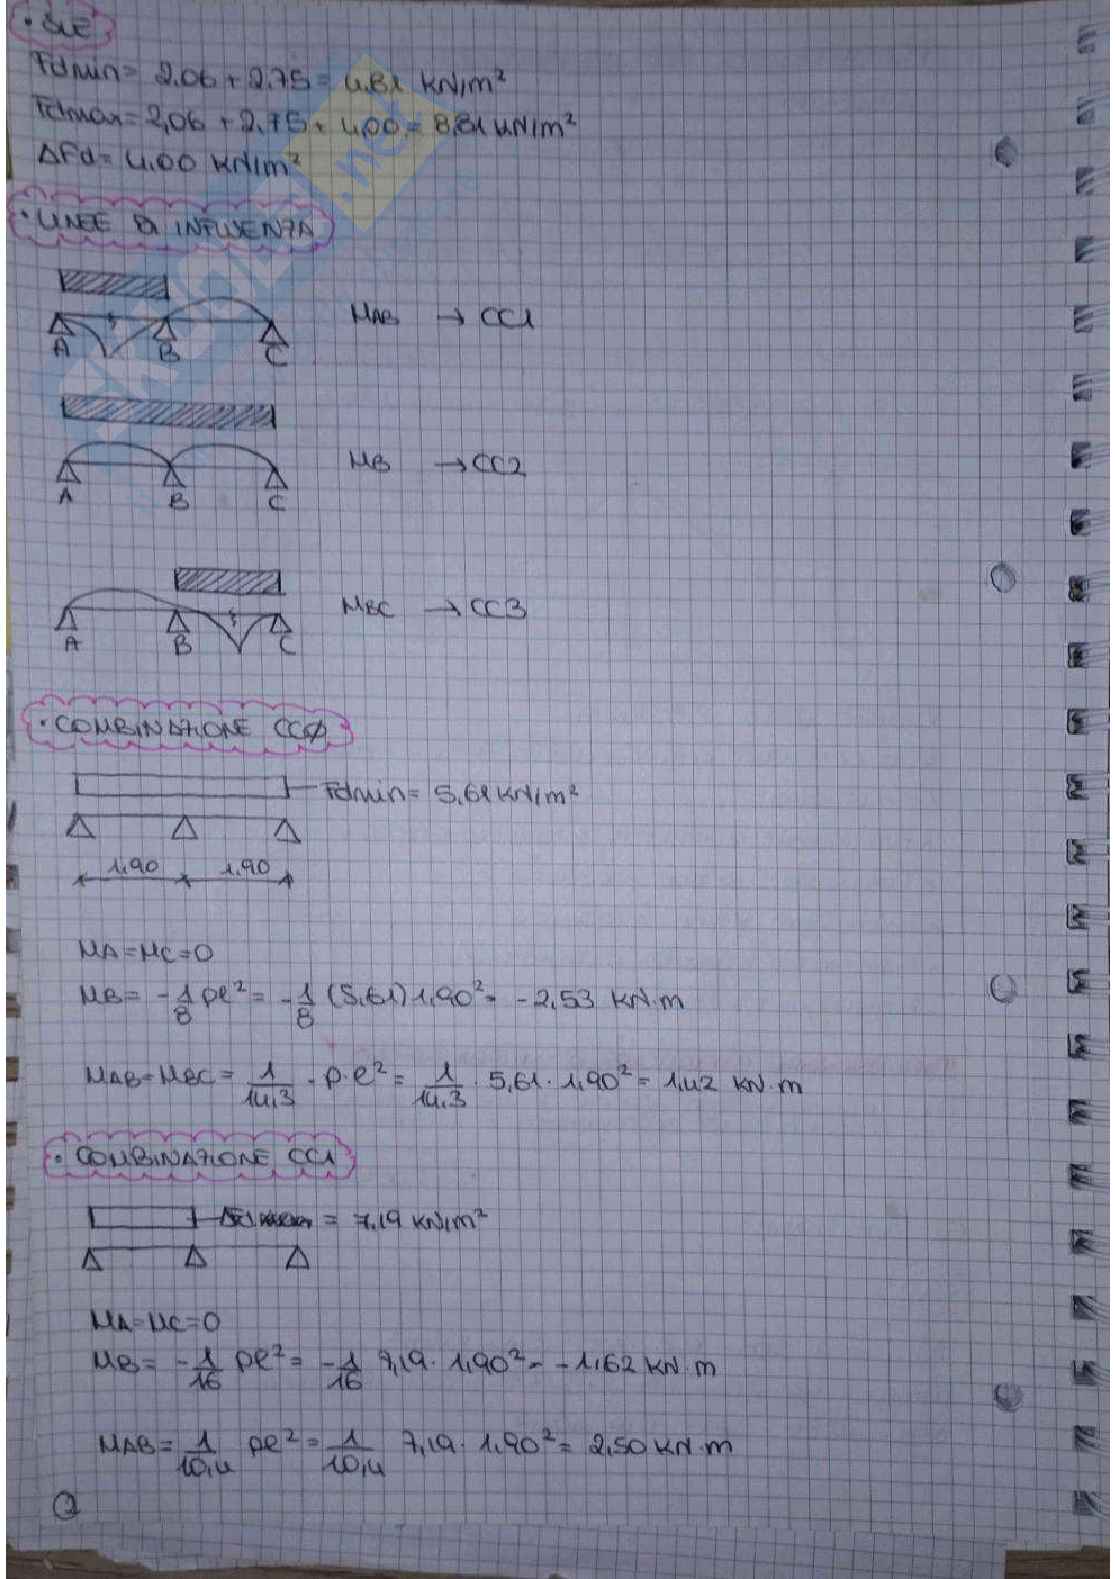 • SLE
Fdmin = 2,06 + 2,75 = 4,81 kN/m²
Fdmax = 2,06 + 2,75 + 4,00 = 8,81 kN/m²
ΔFd = 4,00 kN/m²
• LINEE DI INFLUENZA
A B C MAB → CC1
A B C MB → CC2
A B C MBC → CC3
• COMBINAZIONE CCØ
Fdmin = 5,61 kN/m²
1,90 1,90
MA = MC = 0
MB = -1/8 pl² = -1/8 (5,61) 1,90² = -2,53 kN·m
MAB = MBC = 1/14,3 · p·l² = 1/14,3 · 5,61 · 1,90² = 1,42 kN·m
• COMBINAZIONE CC1
= 7,19 kN/m²
MA = MC = 0
MB = -1/16 pl² = -1/16 7,19 · 1,90² = -1,62 kN·m
MAB = 1/10,4 pl² = 1/10,4 7,19 · 1,90² = 2,50 kN·m
2
SKUOLA.net